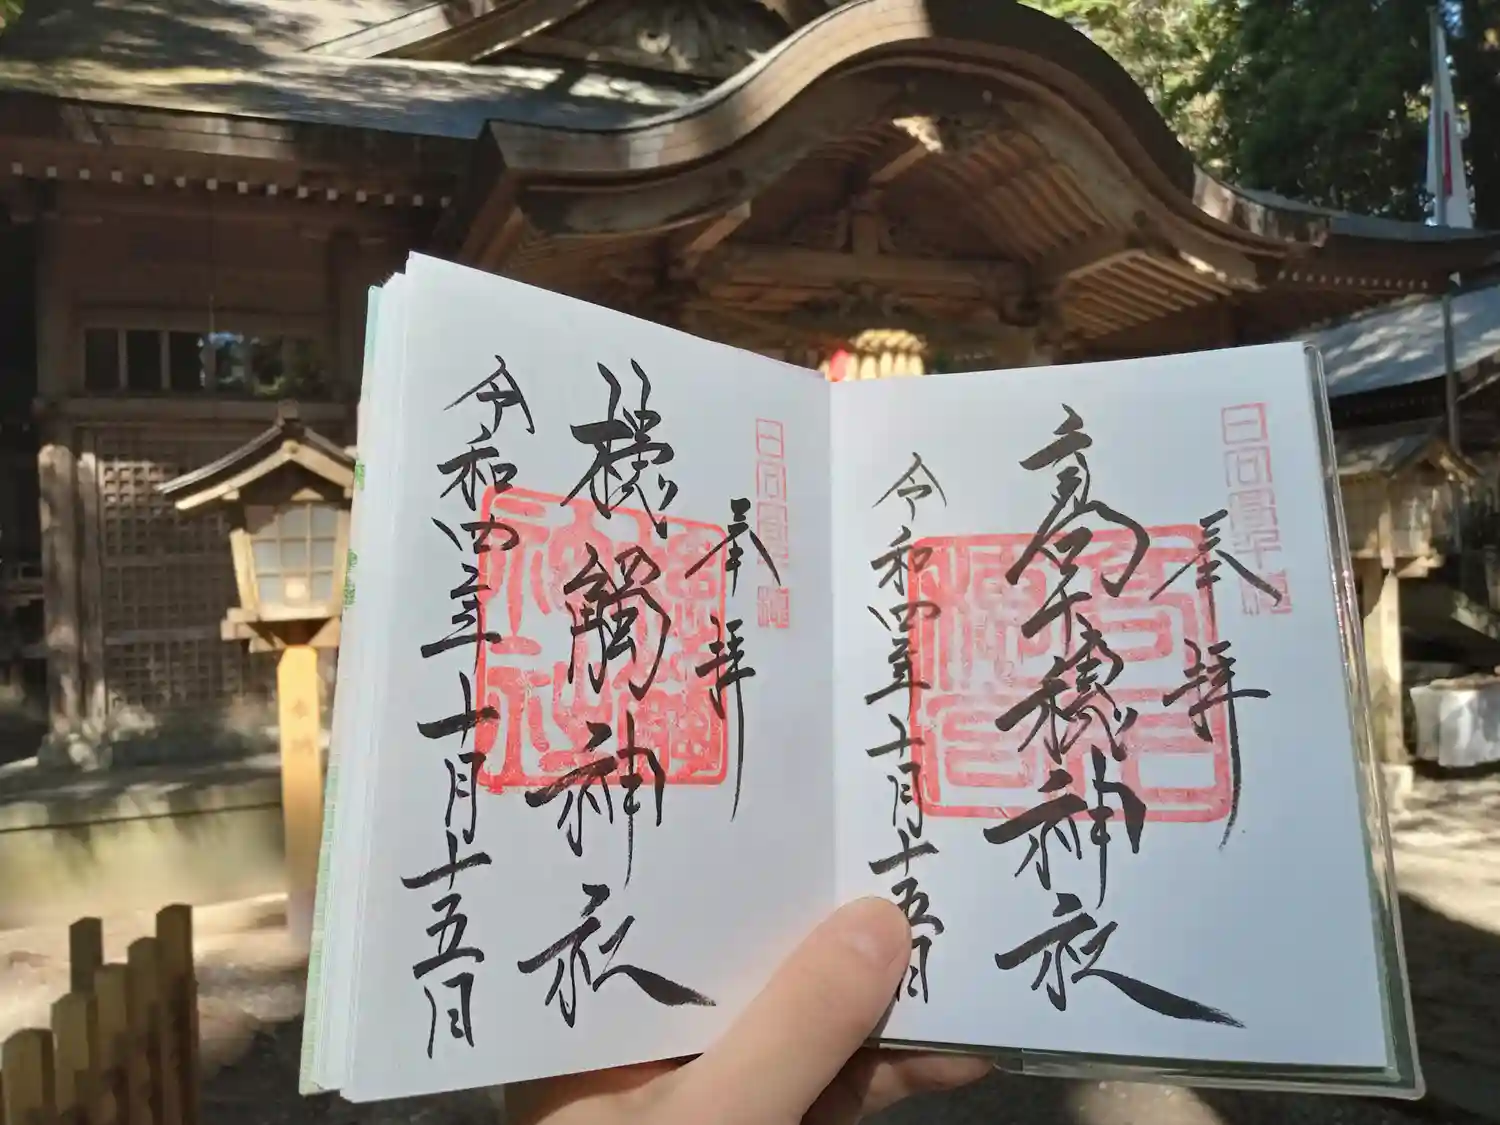 日向高千穂
奉拝
高千穂神社
令和四年十月十五日
日向高千穂
奉拝
槵觸神社
令和四年十月十五日